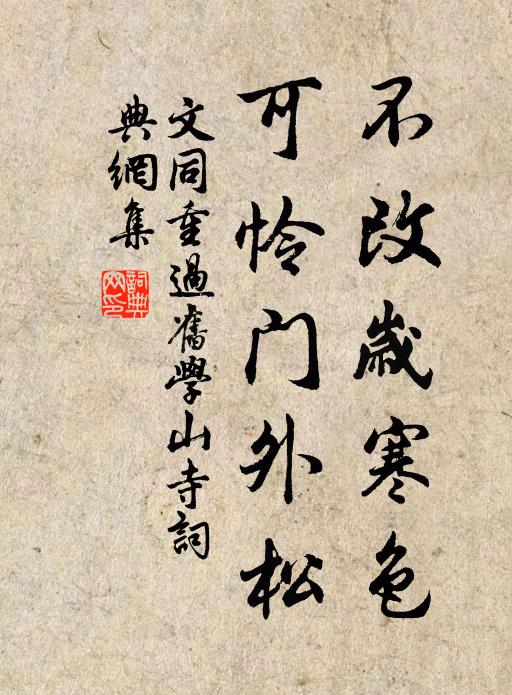 不改歲寒色
可怜门外松
文同重過舊學山寺詞
典網集
詞典网印